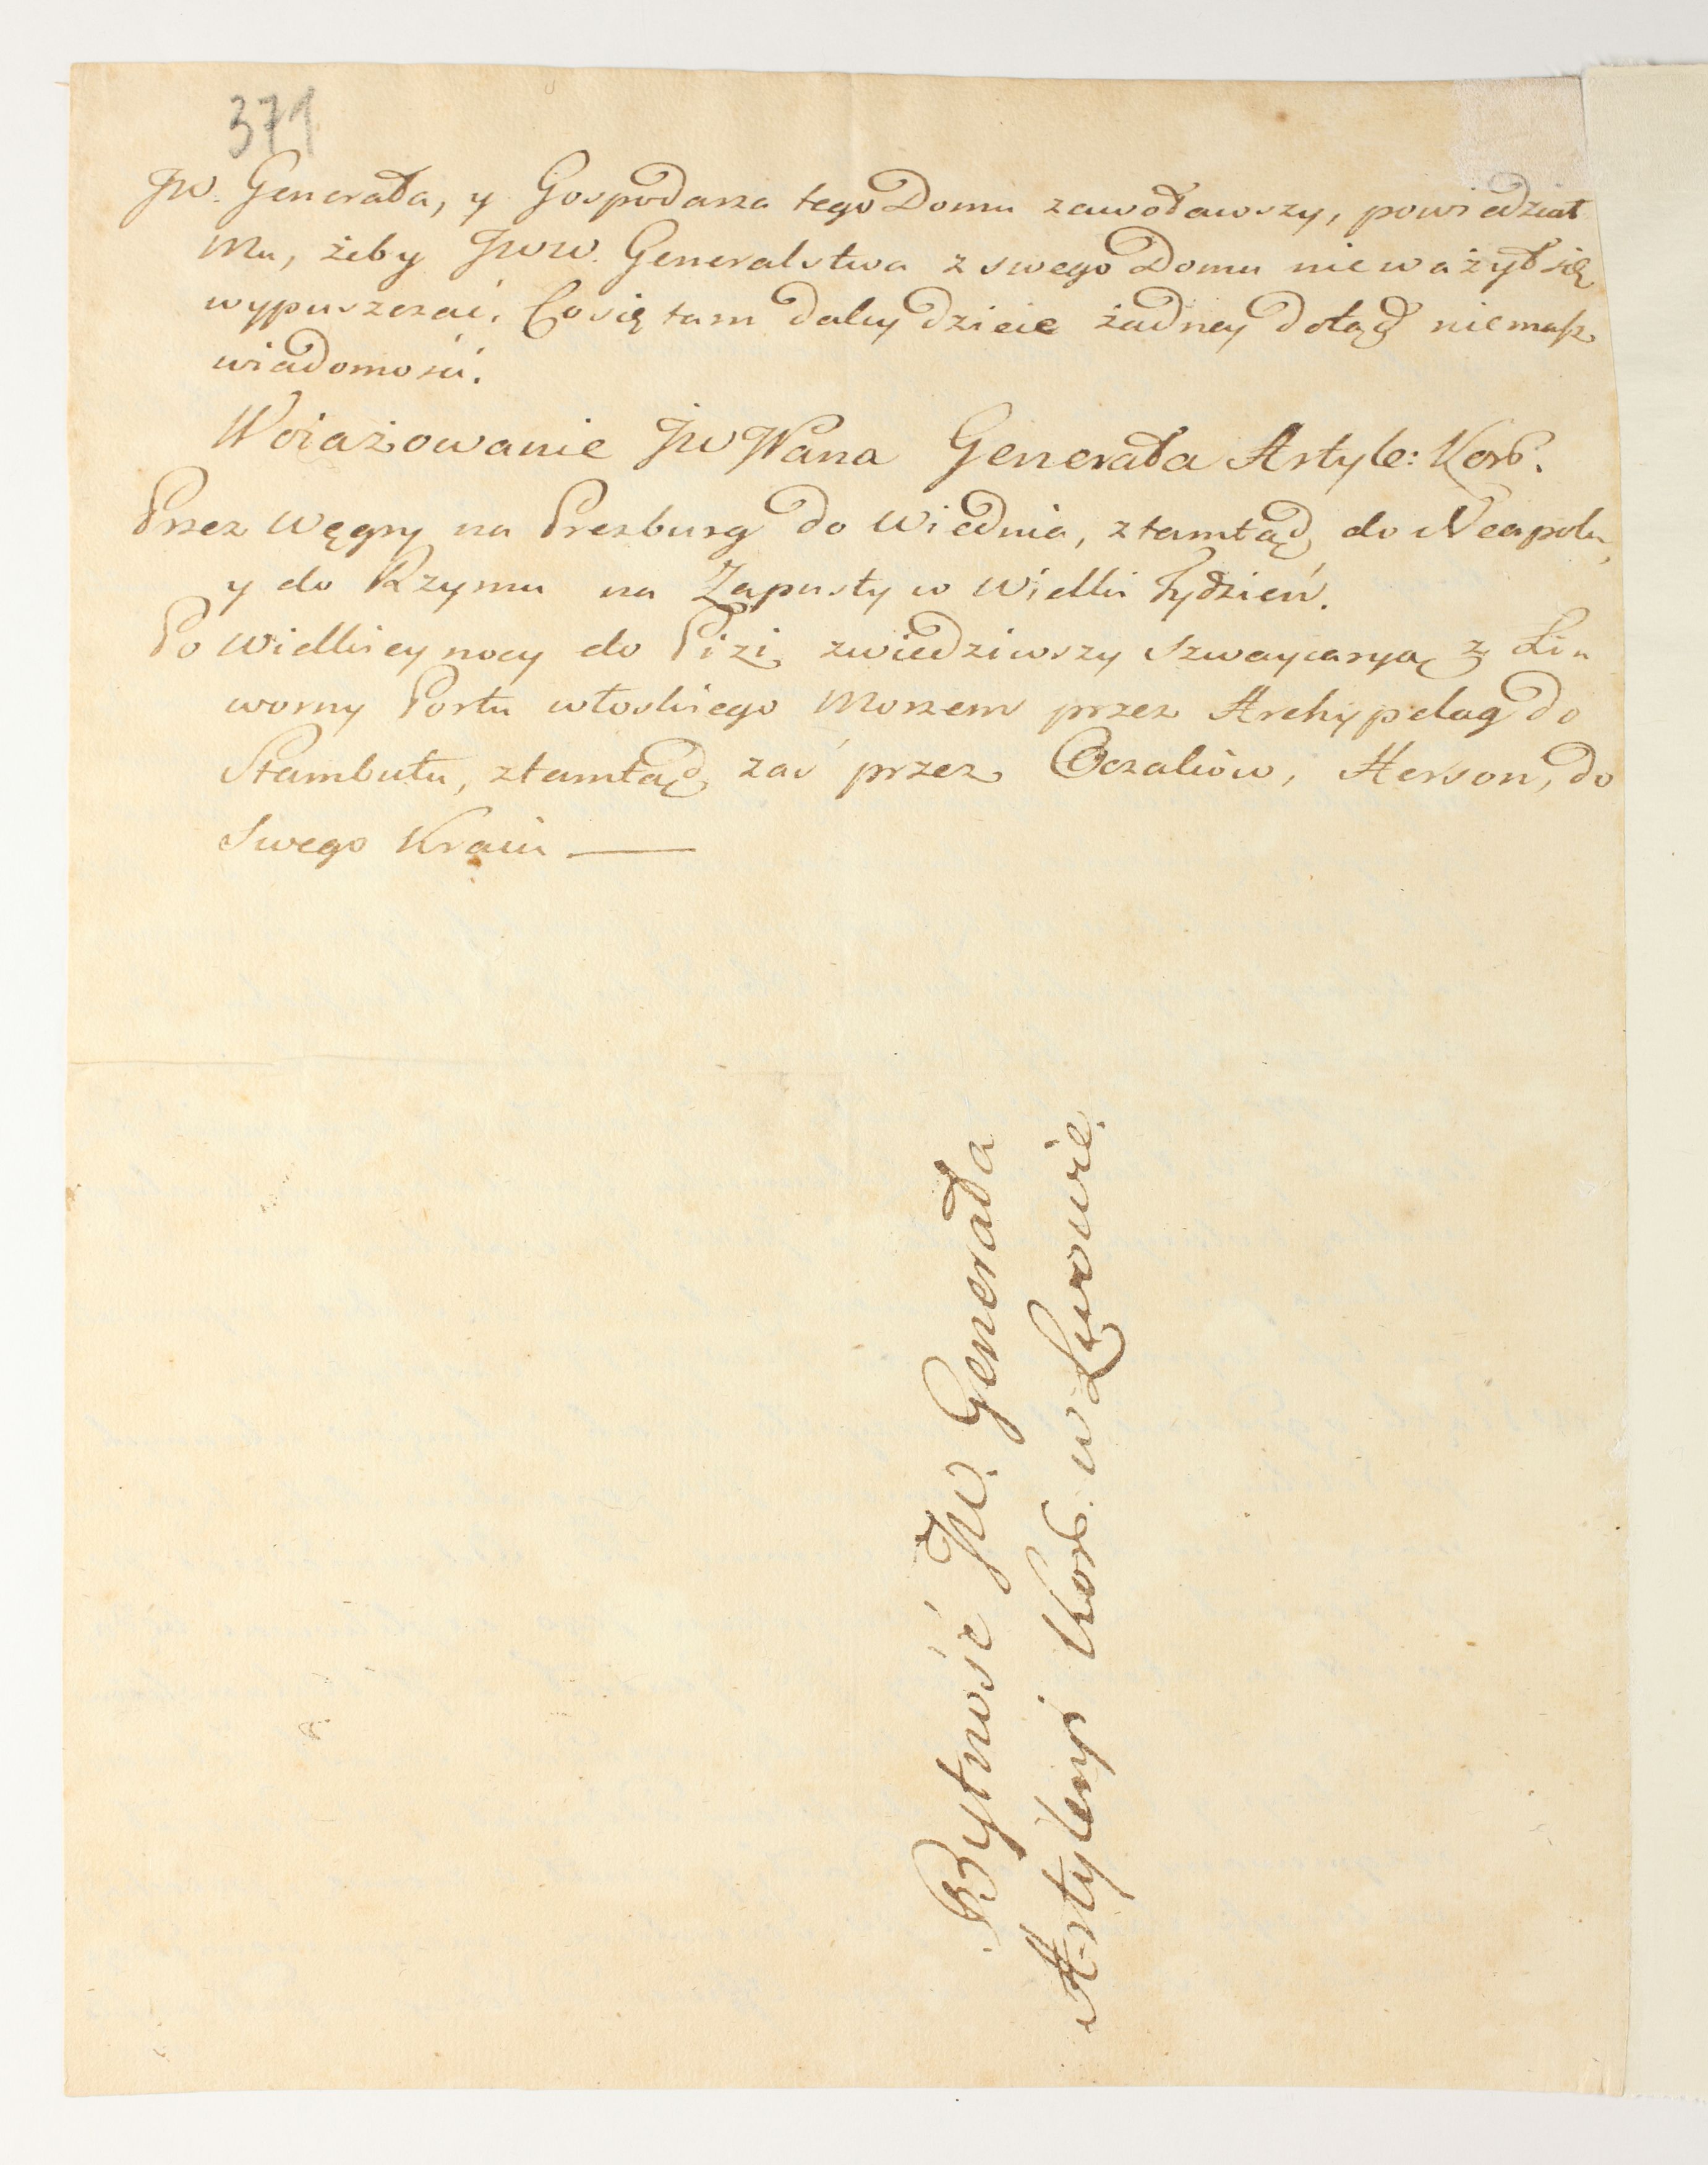 371
JW. Generała, y Gospodarza tego Domu zawoławszy, powiedział
Mu, żeby JWW. Generalstwa z swego Domu nieważył się
wypuszczać. Co się tam daley dzieie żadney dotąd niemasz
wiadomości.
Woiażowanie JW Pana Generała Artyle: Kor.
Przez Węgry na Prezburg do Wiednia, ztamtąd do Neapolu,
y do Rzymu na Zapusty w Wielki Tydzień.
Po Wielkiey nocy do Pizi zwiedziwszy Szwaycaryą z Li-
worny Portu włoskiego Morzem przez Archypelag do
Stambułu, ztamtąd zaś przez Oczaków, Herson, do
Swego Kraiu —
Bytność JW. Generała
Artyleryi Kor. w Lwowie.